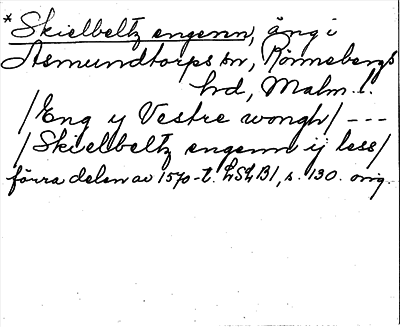 * Skielbeltz engenn, äng i
Asmundtorps sn, Rönnebergs
hd, Malm. l.
/Eng y Vestre wongh/ ---
/Skielbeltz engenn ij less/
förra delen av 1570-t. LSLB1, s. 130. orig.